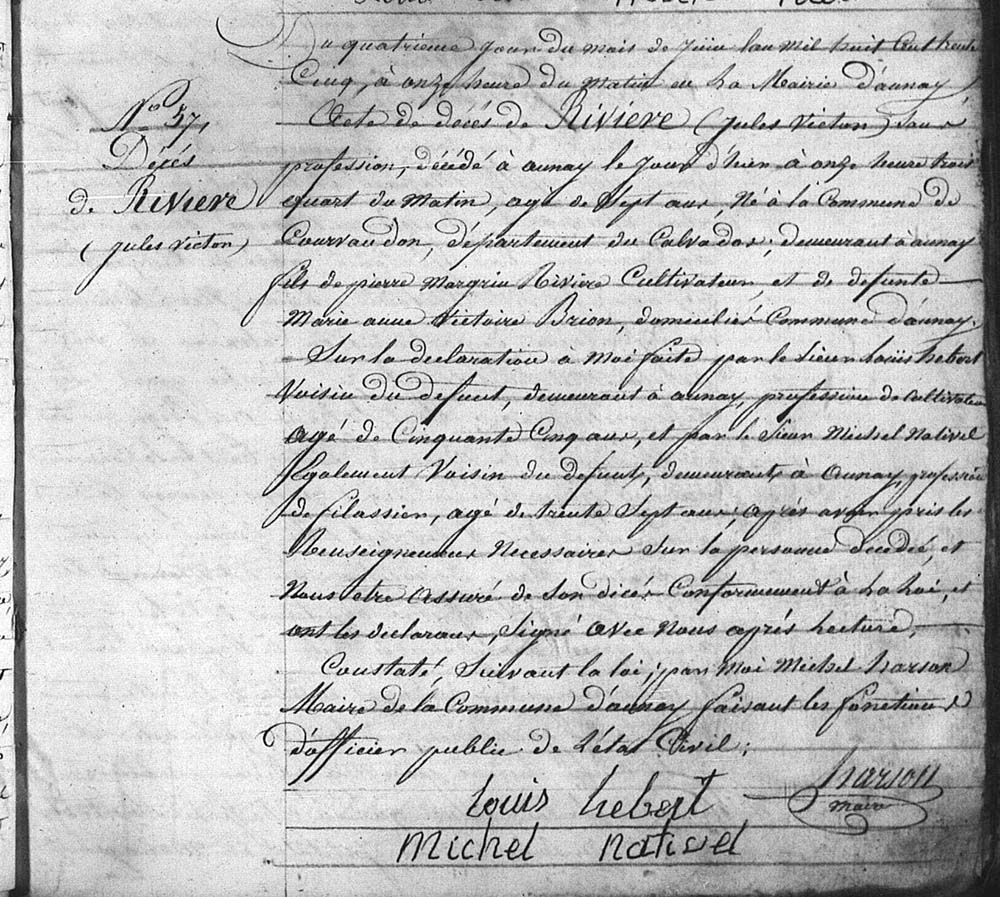 Du quatrieme jour du mois de juin l'an mil huit cent trente
Cinq, à onze heure du matin en la Mairie d'aunay
Acte de décés de Riviere (jules victor) sans
profession, décédé à aunay le jour d'hier à onze heure trois
quart du Matin, agé de sept ans, Né à la Commune de
Courvaudon, département du Calvados; demeurant à aunay
fils de pierre Margrin Riviere Cultivateur, et de defunte
Marie anne Victoire Brion, domiciliés Commune d'aunay.
Sur la declaration a moi faite par le sieur Louis hebert
Voisin du defunt, demeurant à aunay, profession de cultivateur
agé de Cinquante Cinq ans, et par le sieur Michel Nativel
Egalement Voisin du defunt, demeurant à Aunay, profession
de filassier, agé de trente Sept ans; après avoir pris les
Renseignemens Necessaires sur la personne décedée, et
Nous etre assuré de son décés Conformement à La Loi, et
ont les declarans, Signé avec Nous après Lecture,
Constaté, Suivant la loi, par Moi Michel harson
Maire de la Commune d'aunay faisant les fonctions
d'officier public de L'état Civil;
N° 37,
Décés
de Riviere
(jules victor)
harson
maire
Louis hebert
Michel nativel